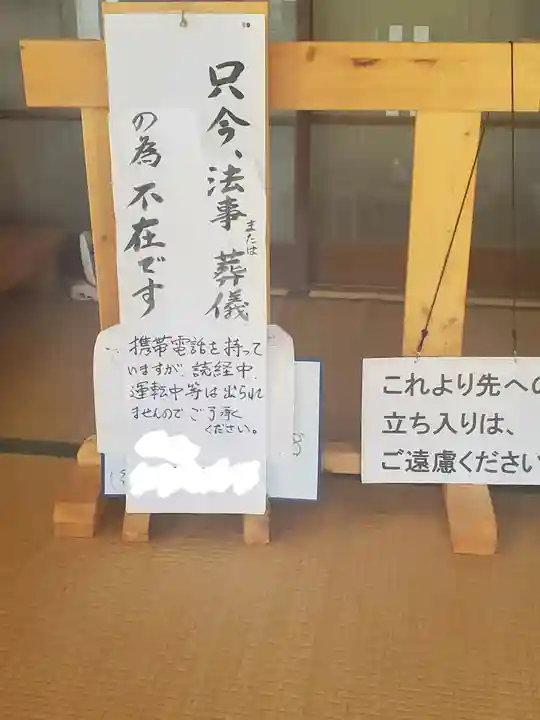 只今、法事または葬儀
の為不在です
携帯電話を持って
いますが、読経中、
運転中等は出られ
ませんのでご了承
ください。
これより先への
立ち入りは、
ご遠慮ください